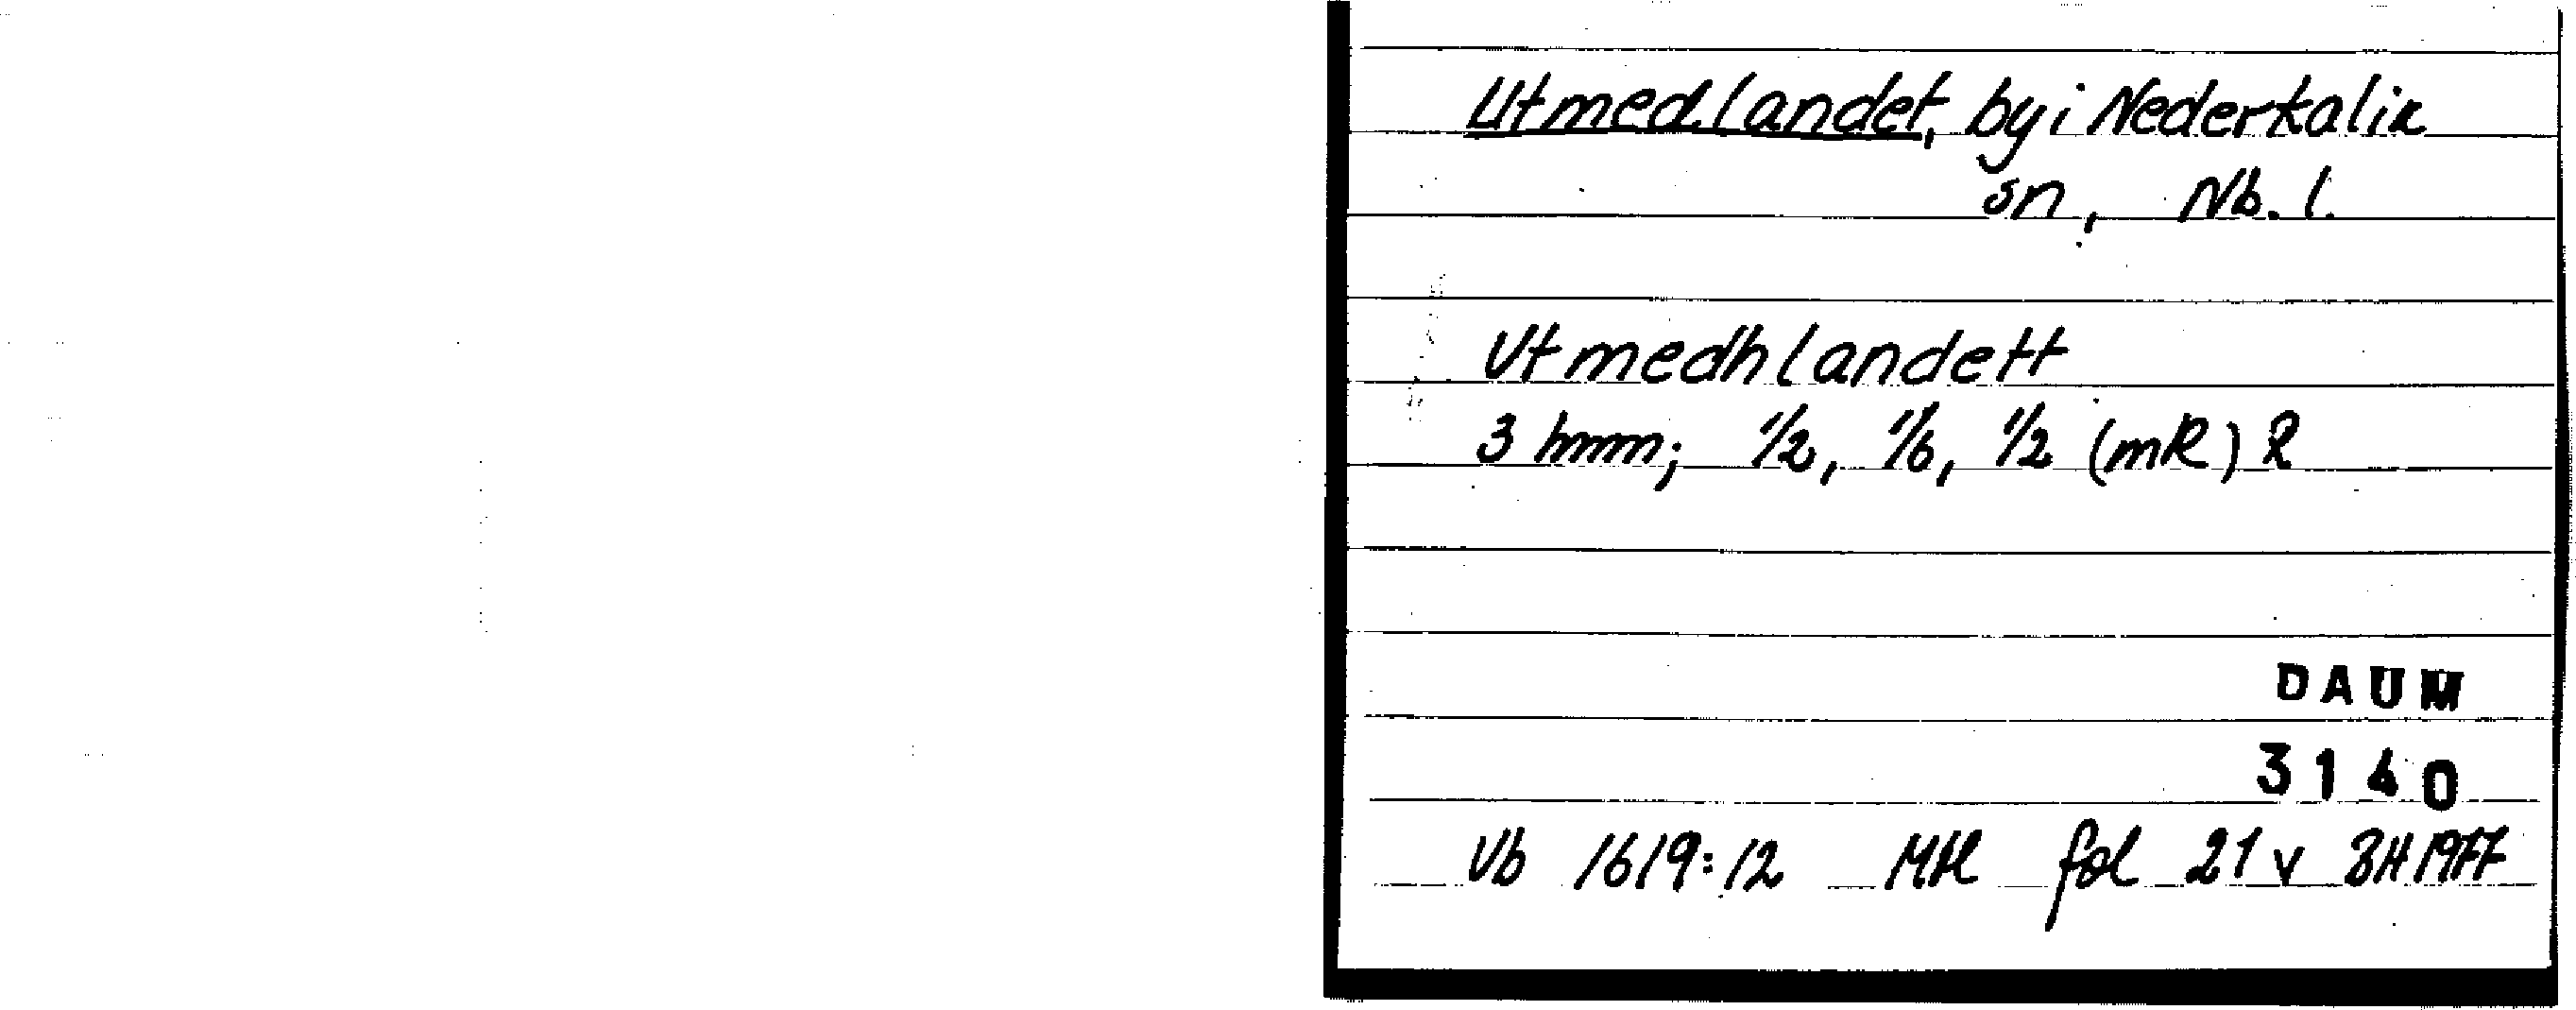 Utmedlandet, by i Nederkalix
sn, Nb. l.
Vtmedhlandett
3 hmm; 1/2, 1/6, 1/2 (mR) R
DAUM
3140
Vb 1619:12 Mtl fol 21 v BH 1977